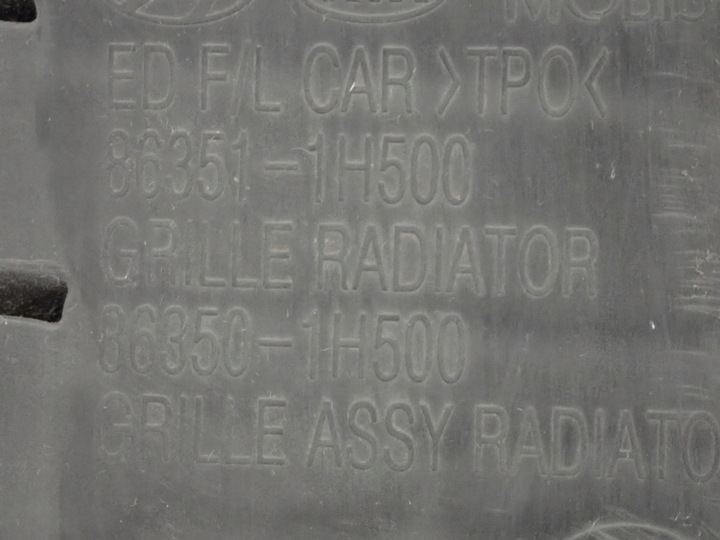 MOBIS
ED F/L CAR >TPO<
86351-1H500
GRILLE RADIATOR
86350-1H500
GRILLE ASSY RADIATO